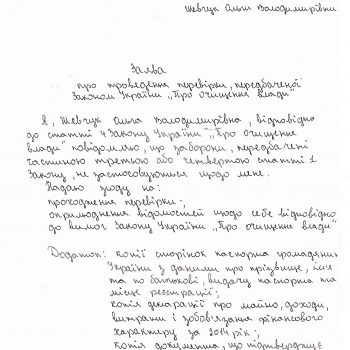 Шевчук Ольги Володимирівни
Заява
про проведення перевірки, передбаченої
Законом України „Про очищення влади"
Я, Шевчук Ольга Володимирівна, відповідно
до статті 4 Закону України „Про очищення
влади" повідомляю, що заборони, передбачені
частиною третьою або четвертою статті 1
Закону, не застосовуються щодо мене.
Надаю згоду на:
проходження перевірки;
оприлюднення відомостей щодо себе відповідно
до вимог Закону України „Про очищення влади"
Додаток: копії сторінок паспорта громадянина
України з даними про прізвище, ім'я
та по батькові, видачу паспорта та
місце реєстрації;
копія декларації про майно, доходи,
витрати і зобов'язання фінансового
характеру за 2014 рік;
копія документа, що підтверджує